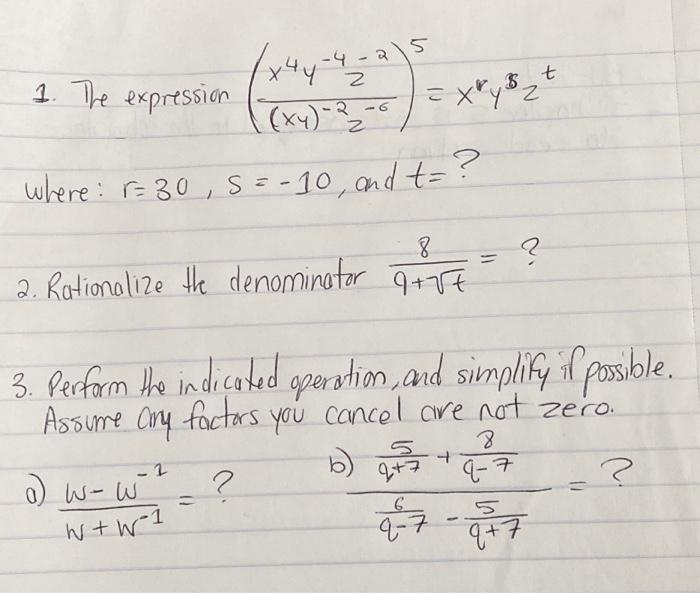 1. The expression (x⁴y⁻⁴z⁻²/(xy)⁻²z⁻⁶)⁵ = xʳyˢzᵗ
where: r=30, s=-10, and t=?
2. Rationalize the denominator 8/(9+√t) = ?
3. Perform the indicated operation, and simplify if possible.
Assume any factors you cancel are not zero.
a) (w-w⁻¹)/(w+w⁻¹) = ?
b) (5/(q+7) + 8/(q-7))/(6/(q-7) - 5/(q+7)) = ?